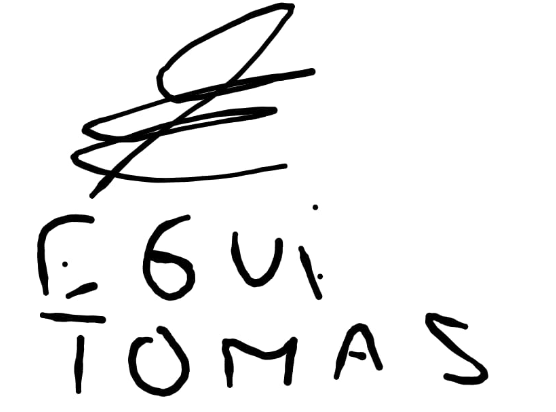 EGUi
TOMAS